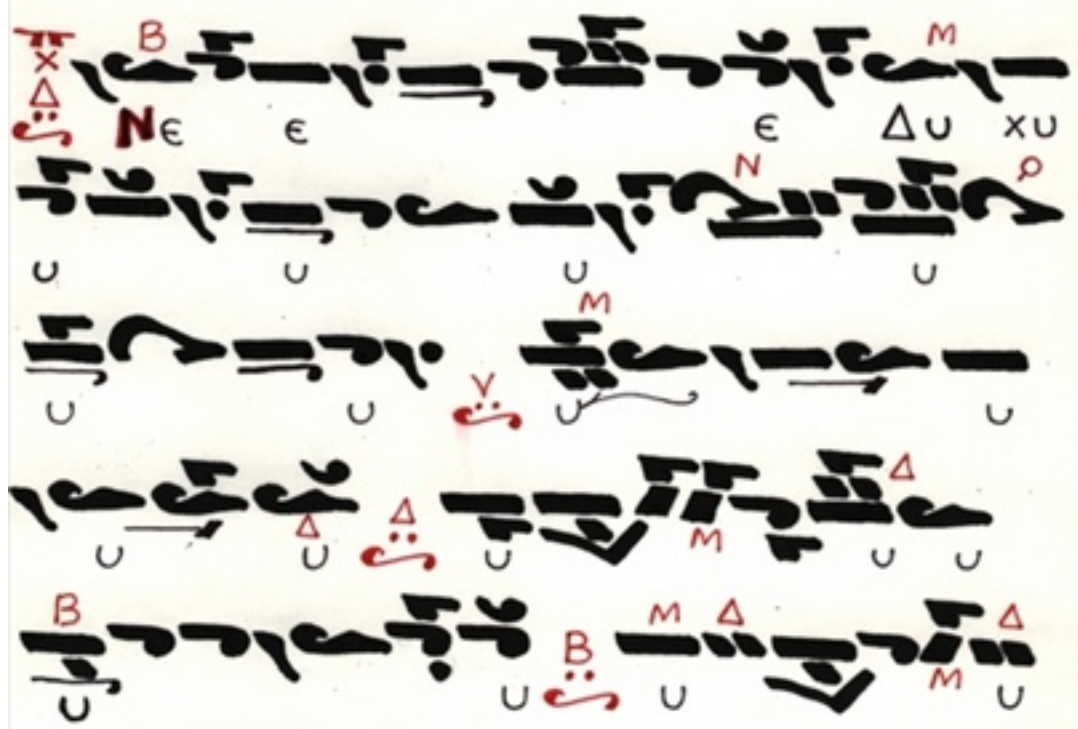 Β Μ
χ
Δ
Νε ε ε Δυ χυ
Ν
υ υ υ υ
Μ
υ υ ν υ υ
Δ
Δ Δ Μ
υ υ υ υ υ
Β Μ Δ Δ
Β Μ
υ υ υ υ